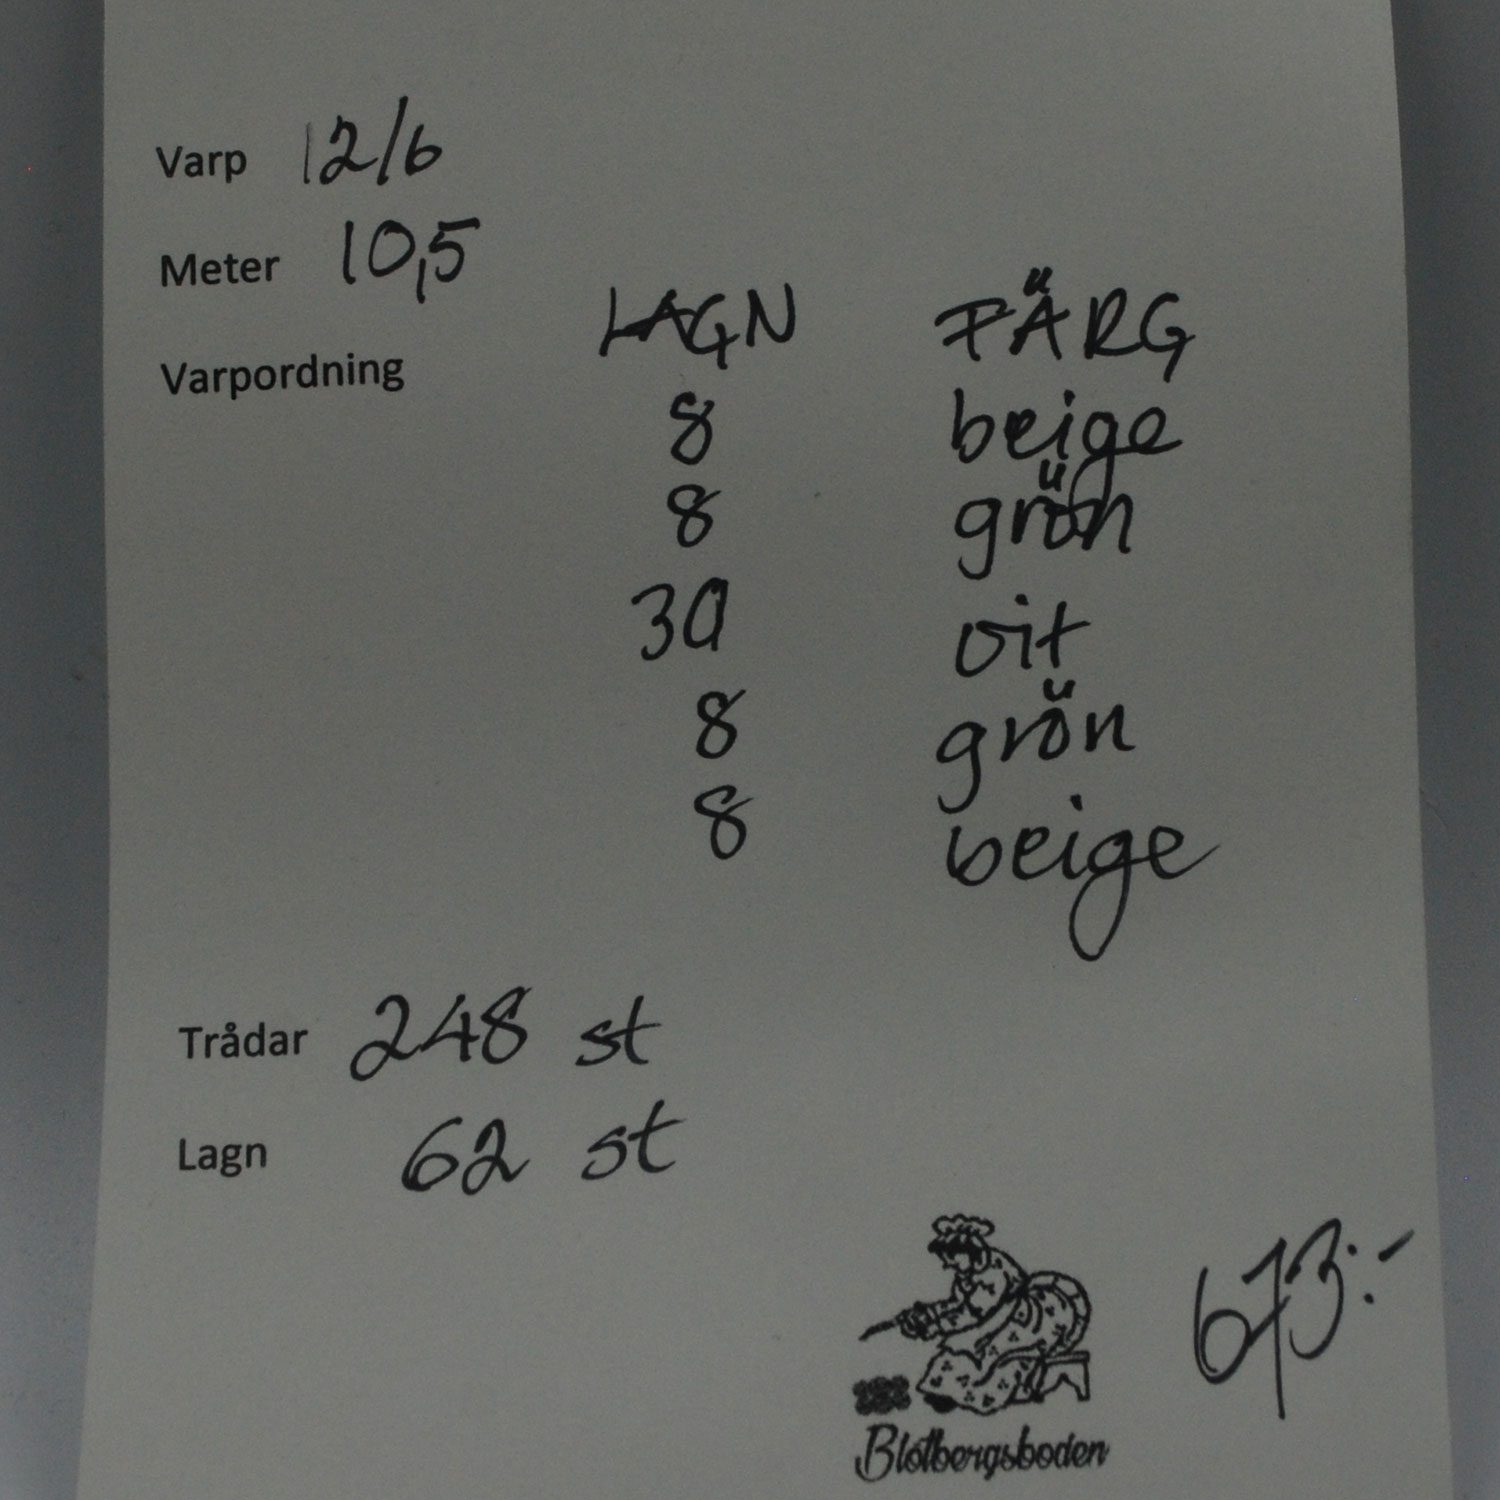 Varp 12/6
Meter 10,5
LAGN FÄRG
Varpordning
8 beige
8 grön
30 vit
8 grön
8 beige
Trådar 248 st
Lagn 62 st
673:-
Blötbergsboden